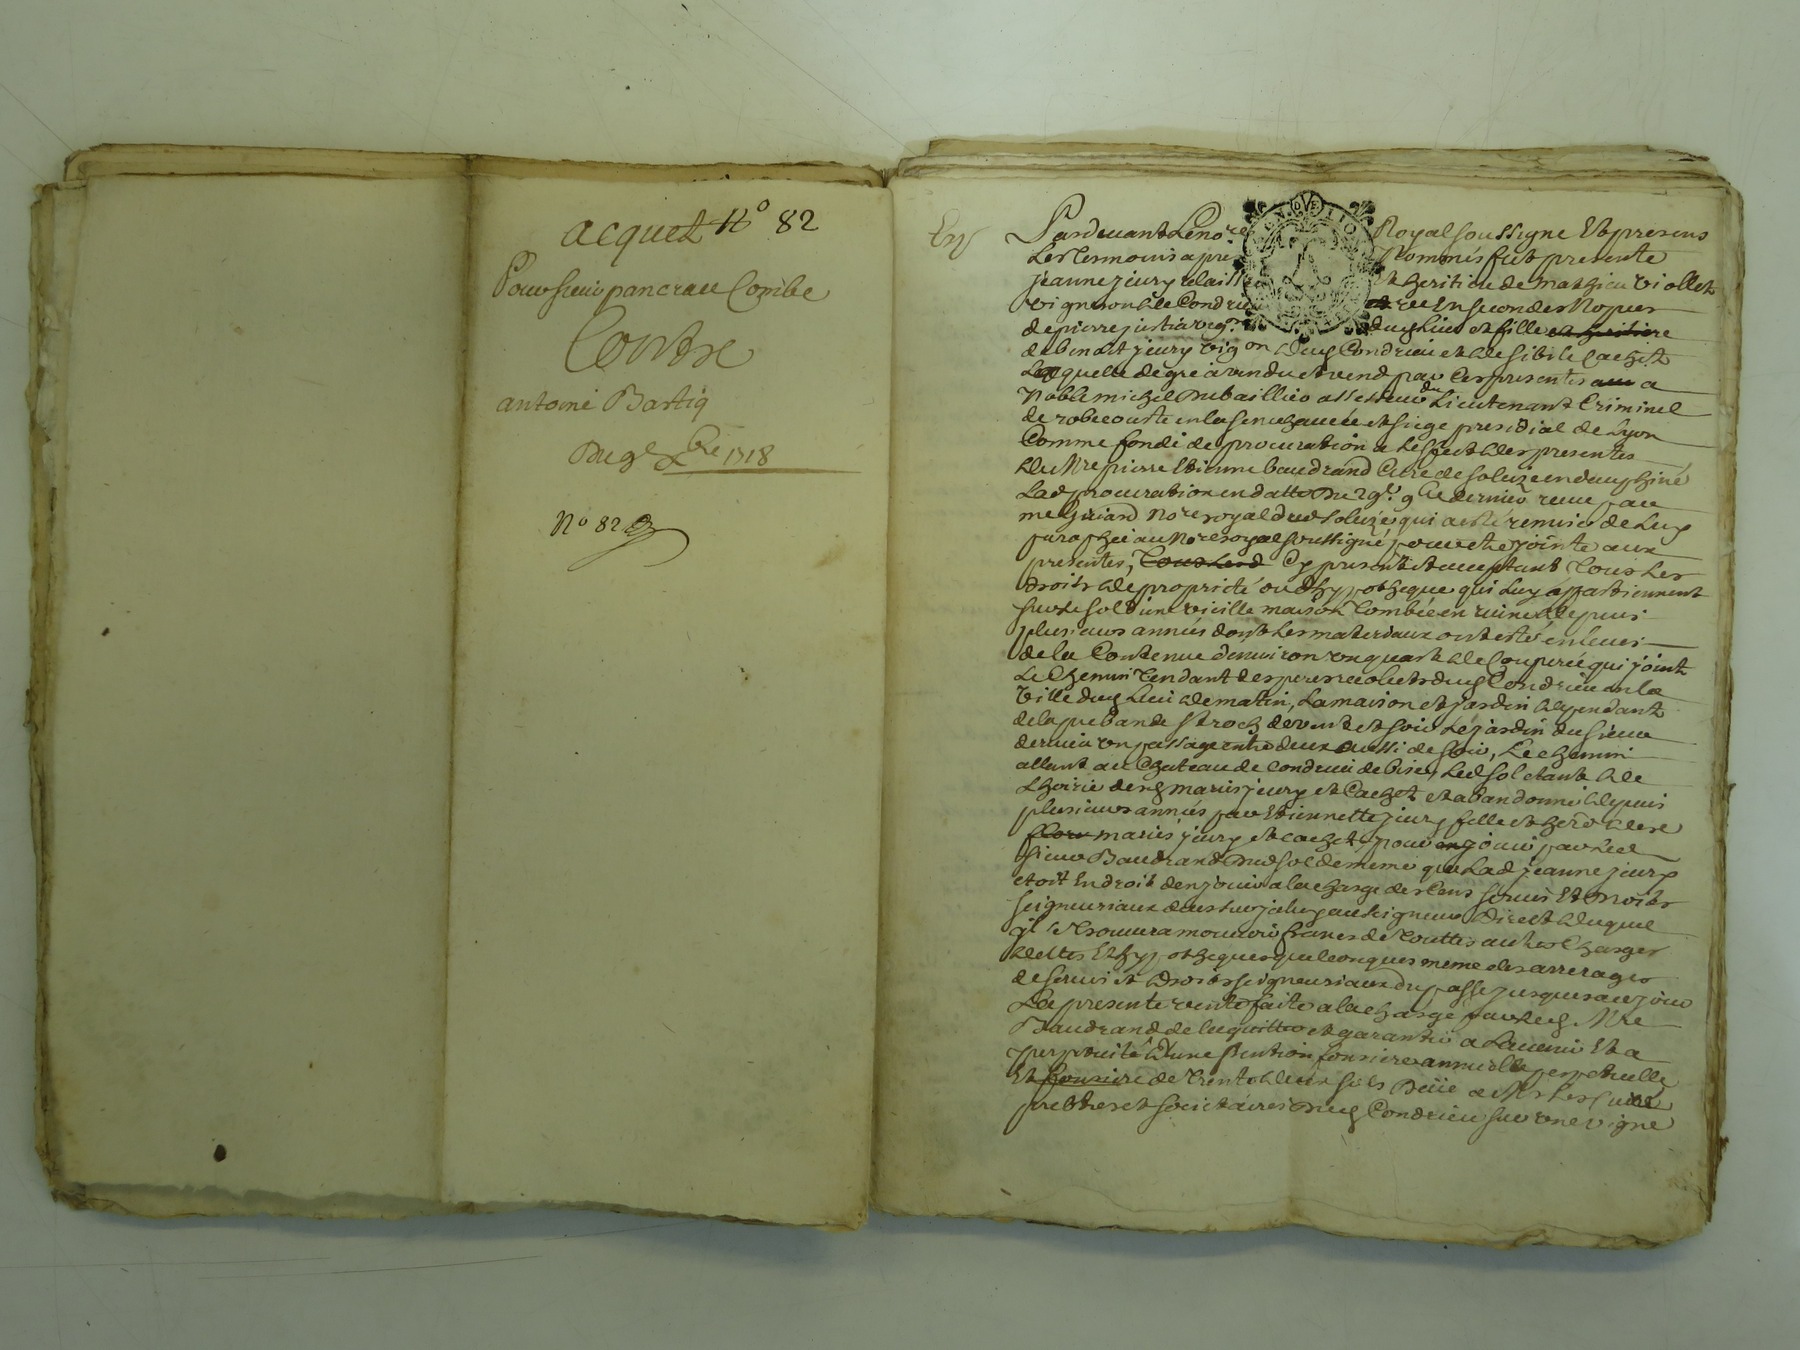 acquet No 82
Pour sieur pancrace Combe
Contre
antoine Bartig
Du 9e xbre 1718
No 82
Exp
Pardevant Le nore Royal soussigne Et presens
Les Tesmoins apres Nommés fut presente
jeanne jeury relaissée Et heritiere de mathieu viollet
vigneron de Condrieu et ree En secondes Nopces
de pierre justia vigon dud Lieu et fille et heritiere
de benoist jeury vigon dud Condrieu et de sibile Cachet
Laquelle de gré a vendu et vend par Ces presentes aux a
Noble michel Dubaillier assesseur du Lieutenant Criminel
de robe courte en la senechaucée et siege presidial de Lyon
Comme fondé de procuration a Leffect des presentes
de Mre pierre Etienne baudrand Curé de solaize en dauphiné
Lad procuration en datte Du 29e 9bre dernier receu par
me guiard Nore royal dud solaize qui a esté remise de Luy
paraphée au Nore royal soussigné pour etre jointe aux
presentes, Tous Les d Cy present et acceptant Tous Les
droits de propriété ou dhypotheque qui Luy appartiennent
sur Le sol d'une vieille maison Tombée en ruine depuis
plusieurs années dont Les materiaux ont esté enlevés
de la Contenue d'environ un quart de Couperée qui joint
Le Chemin Tendant des peres recolets dud Condrieu en la
ville dud Lieu de matin, La maison et jardin dependant
de la prebande St roch de vent et soir Le jardin du sieur
dernier un passage entre deux aussi de soir, Le chemin
allant au Chateau de Condrieu de bize, Led sol etant de
Lhoirie desd mariés jeury et Cachet et abandonné depuis
plusieurs années par Etiennette jeury fille et here desd
mariés jeury et cachet, pour en jouir par Led
sieur Baudrand Dud sol de meme que Lad jeanne jeury
etoit En droit den jouir a la charge des Cens servis Et Droits
seigneuriaux deus sur jcelluy au seigneur Direct duquel
jl se Trouvera mouvoir francs de Touttes autres Charges
dettes Et hypotheques quelconques meme des arrerages
de servis et droits seigneuriaux du passé jusques a ce jour
La presente vente faite a la charge par led Mre
Baudrand de lacquitter et garantir a Lavenir Et a
perpetuité D'une Pention fonciere annuelle perpetuelle
Et fonciere de Trente deux sols Deüe a Mrs Les Curé
prebtres et societaires dud Condrieu sur une vigne